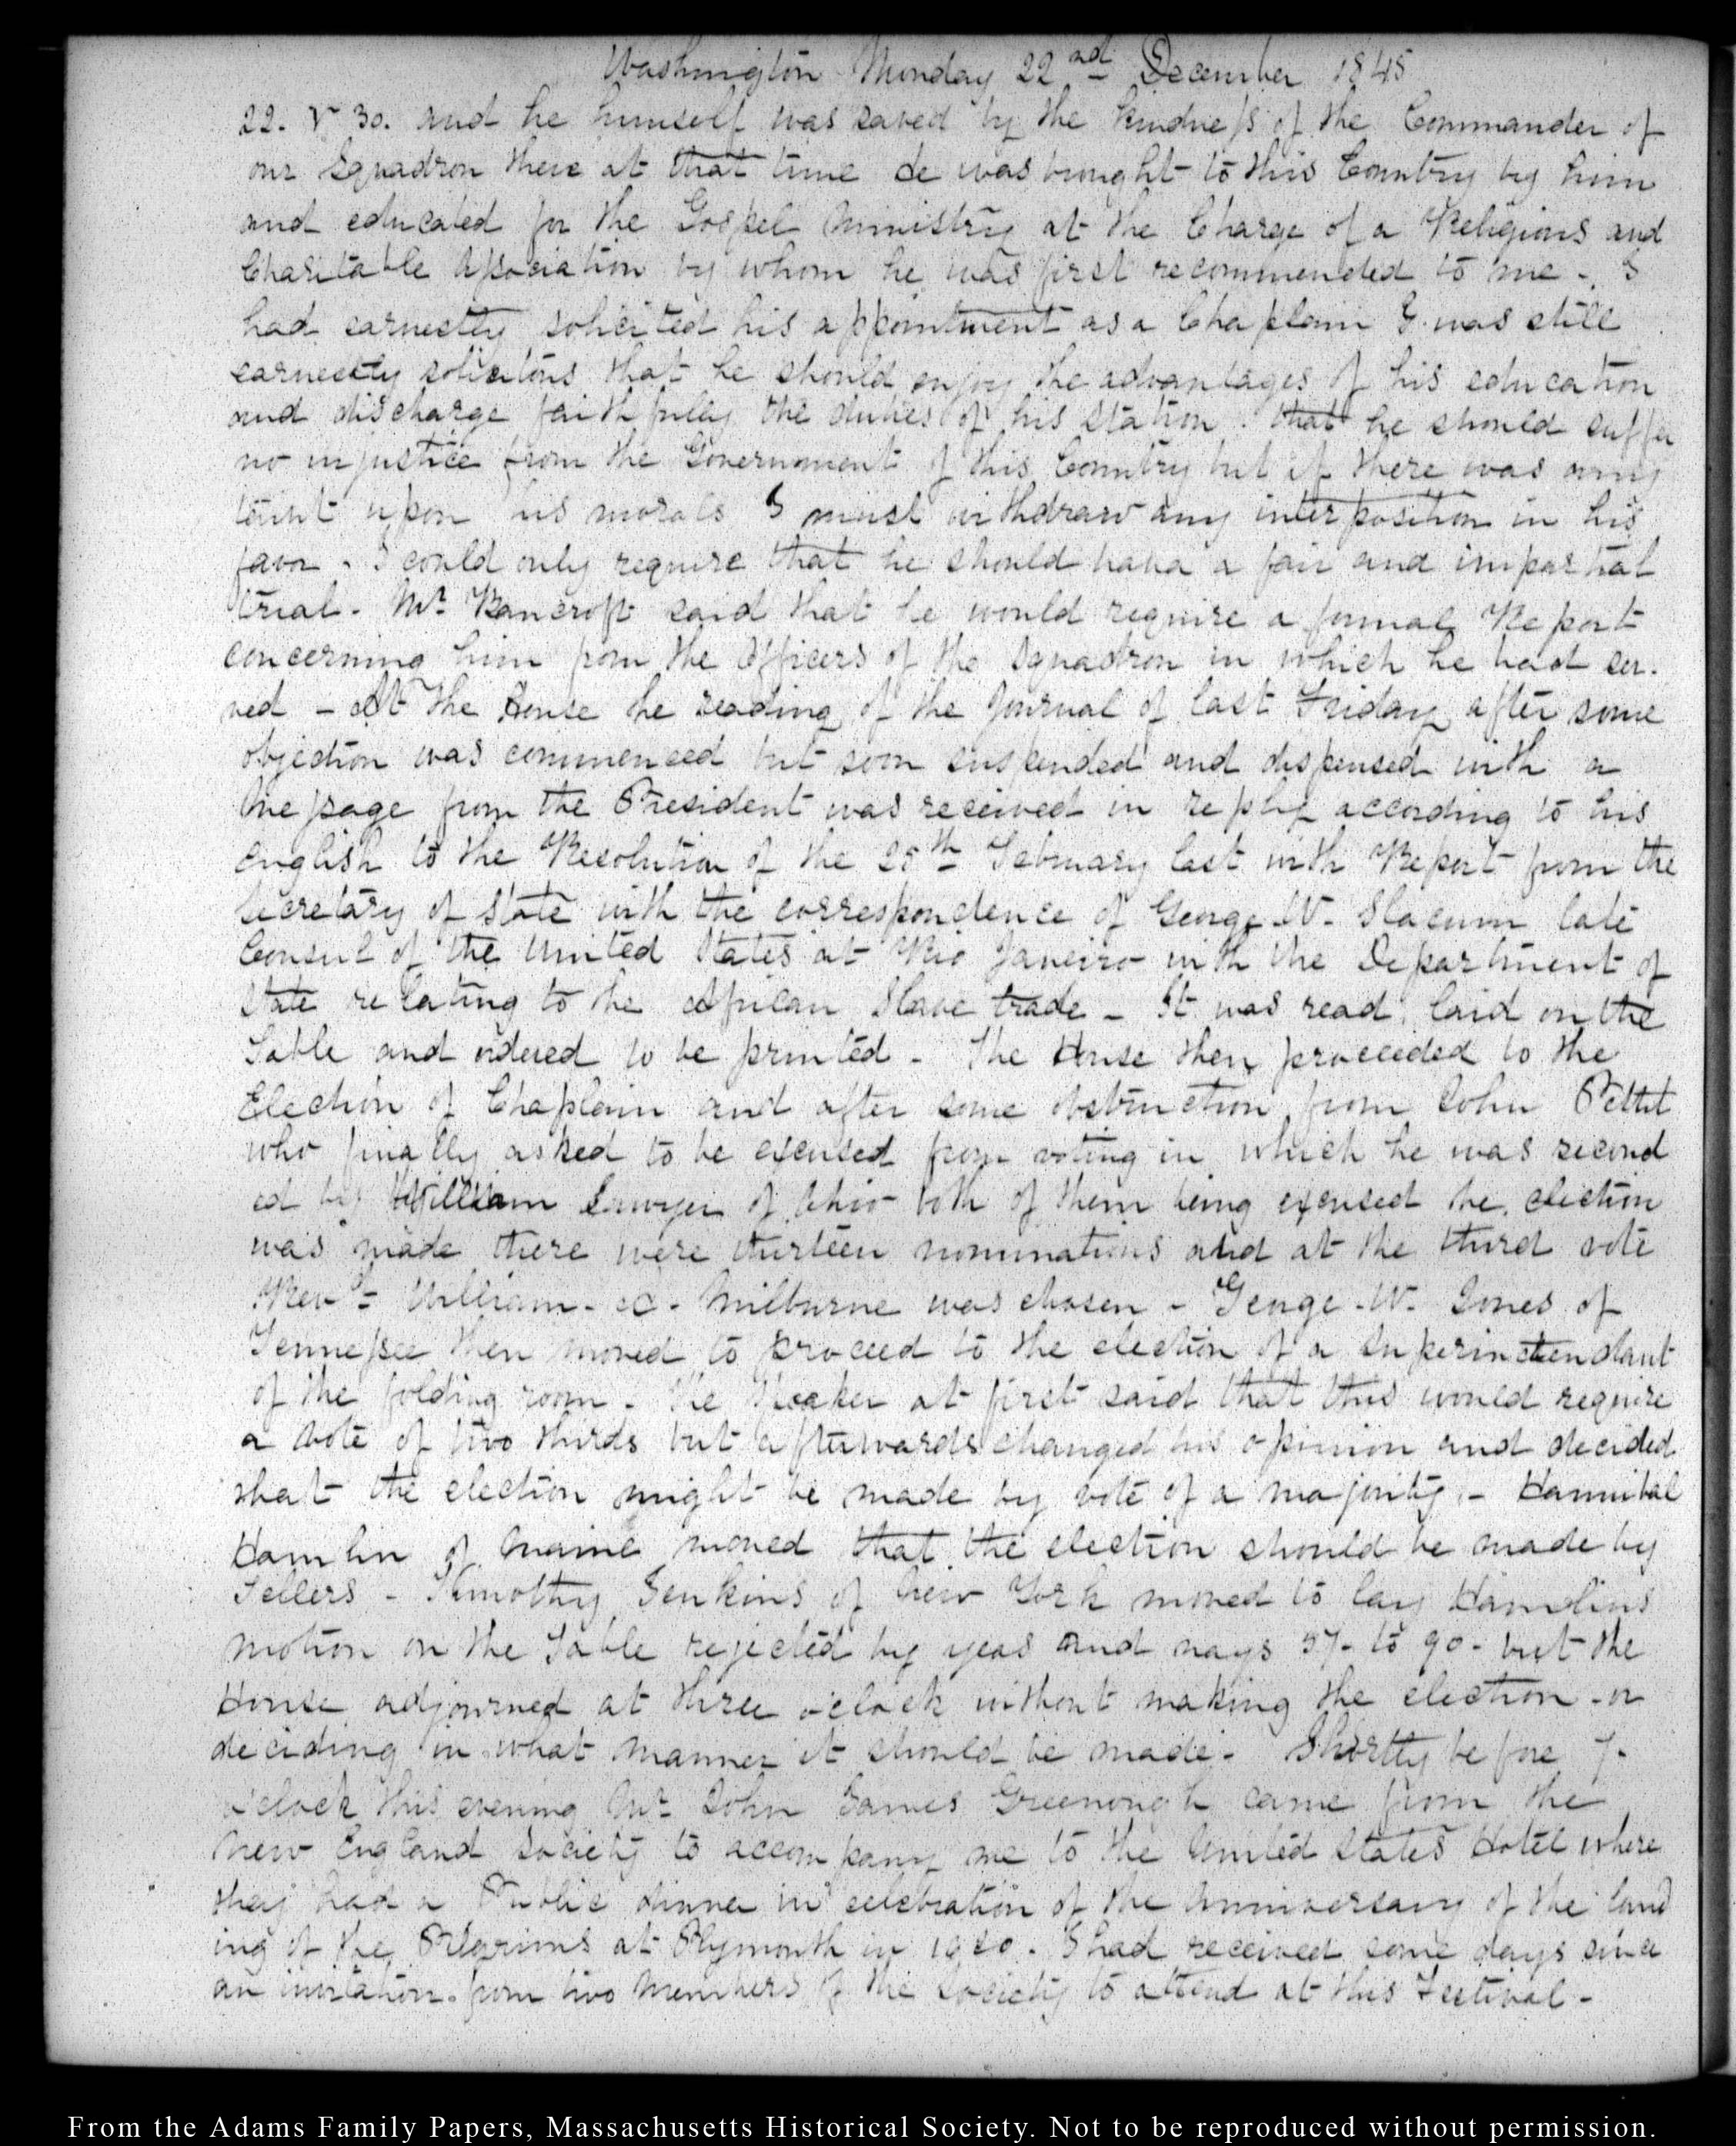 Washington Monday 22nd December 1845
22. V 30. and he himself was saved by the kindness of the Commander of
our Squadron there at that time He was brought to this Country by him
and educated for the Gospel Ministry at the Charge of a Religious and
Charitable Association by whom he was first recommended to me - I
had earnestly solicited his appointment as a Chaplain I was still
earnestly solicitous that he should enjoy the advantages of his education
and discharge faithfully the duties of his station. that he should suffer
no injustice from the Government of this Country but if there was any
taint upon his morals I must withdraw any interposition in his
favor - I could only require that he should have a fair and impartial
trial. Mr Bancroft said that he would require a formal Report
concerning him from the Officers of the Squadron in which he had ser-
ved - At the House the reading of the Journal of last Friday after some
objection was commenced but soon suspended and dispensed with a
Message from the President was received in reply according to his
English to the Resolution of the 25th February last with Report from the
Secretary of State with the correspondence of George W. Slacum late
Consul of the United States at Rio Janeiro with the Department of
State relating to the African Slave trade - It was read, laid on the
Table and ordered to be printed - The House then proceeded to the
Election of Chaplain and after some obstruction from John Pettit
who finally asked to be excused from voting in which he was second
ed by William Sawyer of Ohio both of them being excused the election
was made there were thirteen nominations and at the third vote
Revd William - H - Milburne was chosen - George - W - Jones of
Tennessee then moved to proceed to the election of a Superintendant
of the folding room - The Speaker at first said that this would require
a vote of two thirds but afterwards changed his opinion and decided
that the election might be made by vote of a majority - Hannibal
Hamlin of Maine moved that the election should be made by
Tellers - Timothy Jenkins of New York moved to lay Hamlins
motion on the Table rejected by yeas and nays 57 - to 90 - but the
House adjourned at three o'clock without making the election - or
deciding in what manner it should be made - Shortly before 7 -
o'clock this evening Mr John James Greenough came from the
New England Society to accompany me to the United States Hotel where
they had a Public dinner in celebration of the Anniversary of the land
ing of the Pilgrims at Plymouth in 1620 - I had received some days since
an invitation from two Members of the Society to attend at this Festival -
From the Adams Family Papers, Massachusetts Historical Society. Not to be reproduced without permission.